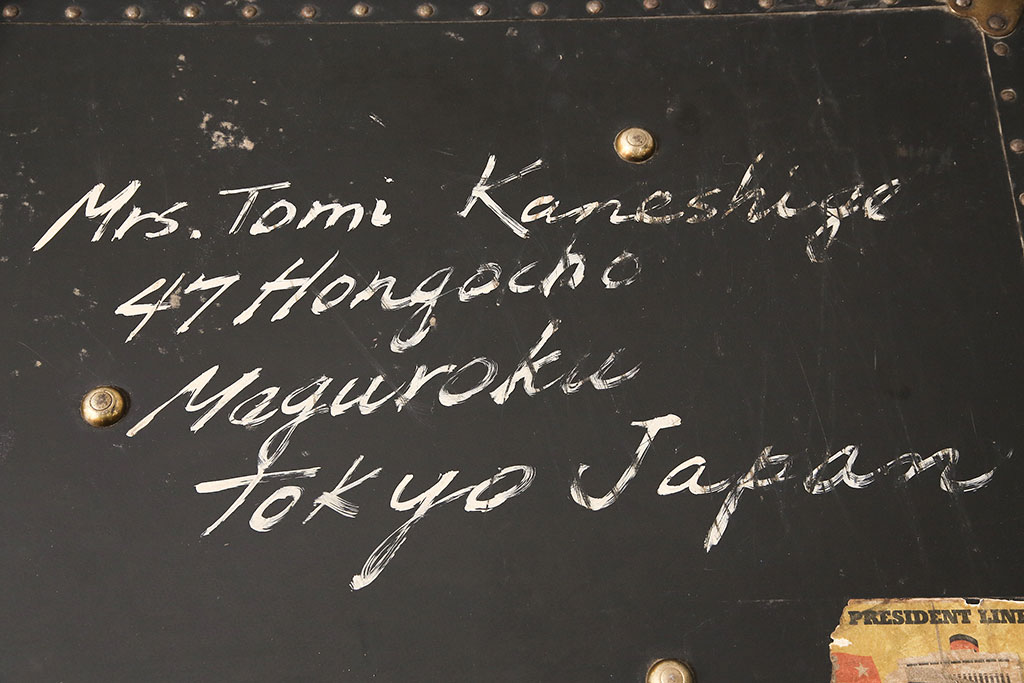 Mrs. Tomi Kaneshige
47 Hongocho
Meguroku
Tokyo Japan
PRESIDENT LINE